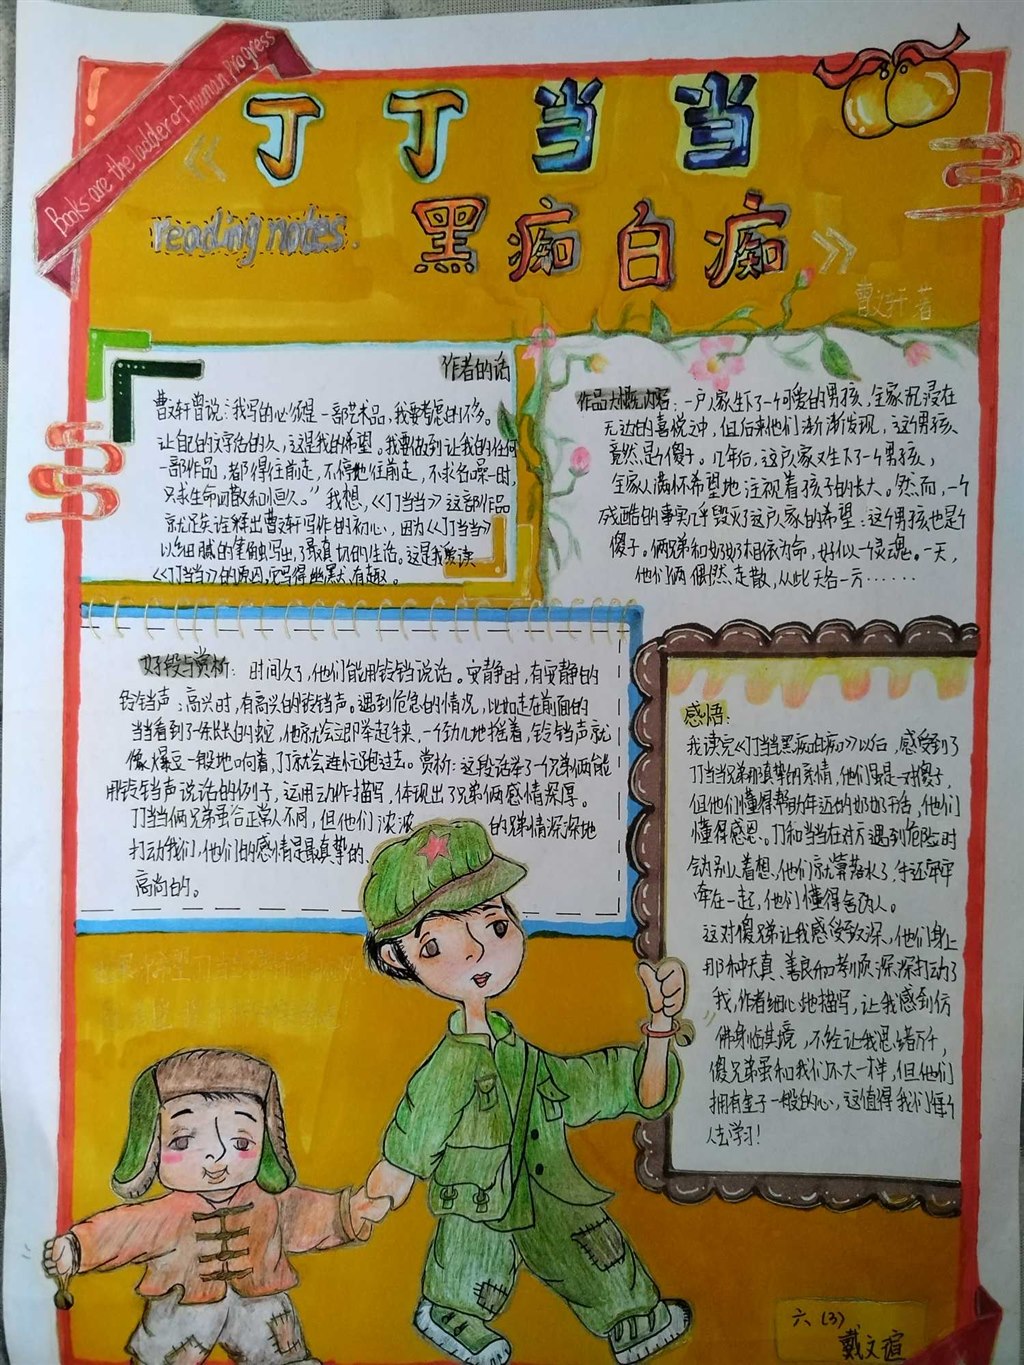 Books are the ladder of human progress
《丁丁当当
黑痴白痴》
reading notes.
曹文轩 著
作者的话
曹文轩曾说:"我写的必须是一部艺术品,我要考虑的很多。
让自己的文字活的久,这是我的希望。我要做到让我的任何
一部作品,都得往前走,不停地往前走,不求名噪一时,
只求生命可散和恒久。"我想,《丁丁当当》这部作品
就足矣诠释出曹文轩写作的初心,因为《丁丁当当》
以细腻的笔触写出了最真切的生活。这是我爱读
《丁丁当当》的原因,它写得幽默、有趣。
作品大概内容:一户人家生下了一个可爱的男孩,全家沉浸在
无边的喜悦之中,但后来他们渐渐发现,这男孩
竟然是个傻子。几年后,这户人家又生下了一个男孩,
全家人满怀希望地注视着孩子的长大。然而,一个
残酷的事实几乎毁灭了这户人家的希望:这个男孩也是个
傻子。俩兄弟和奶奶相依为命,好似一个灵魂。一天,
他们俩偶然走散,从此天各一方……
好段与赏析:时间久了,他们能用铃铛说话。安静时,有安静的
铃铛声;高兴时,有高兴的铃铛声。遇到危急的情况,比如走在前面的
当当看到了一条长长的蛇,他就会立即举起手来,一个劲儿地摇着,铃铛声就
像爆豆一般地响着,丁丁就会连忙跑过去。赏析:这段话举了个兄弟俩能
用铃铛声说话的例子,运用动作描写,体现出了兄弟俩感情深厚。
丁丁当当俩兄弟虽合正常人不同,但他们浓浓的兄弟情深深地
打动我们,他们的感情是最真挚的、
高尚的。
感悟:
我读完《丁丁当当黑痴白痴》以后,感受到了
丁丁当当兄弟那真挚的亲情,他们虽是一对傻子,
但他们懂得帮助年迈的奶奶干活,他们
懂得感恩。丁丁和当当在对方遇到危险时
会为别人着想,他们就算落水了,手还牢牢
牵在一起,他们懂得舍己为人。
这对傻兄弟让我感受至深,他们身上
那种天真、善良和孝顺深深打动了
我,作者细心地描写,让我感到仿
佛身临其境,不经让我思绪万千,
傻兄弟虽和我们不大一样,但他们
拥有金子一般的心,这值得我们每个
人去学习!
六(3)
戴文萱